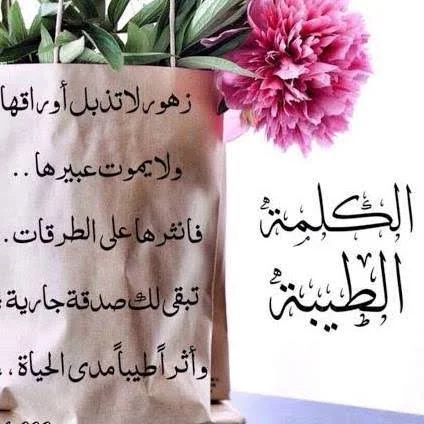 الكلمة
الطيبة
زهور لا تذبل أوراقها
ولا يموت عبيرها . .
فانثرها على الطرقات .
تبقى لك صدقة جارية
وأثراً طيباً مدى الحياة . .